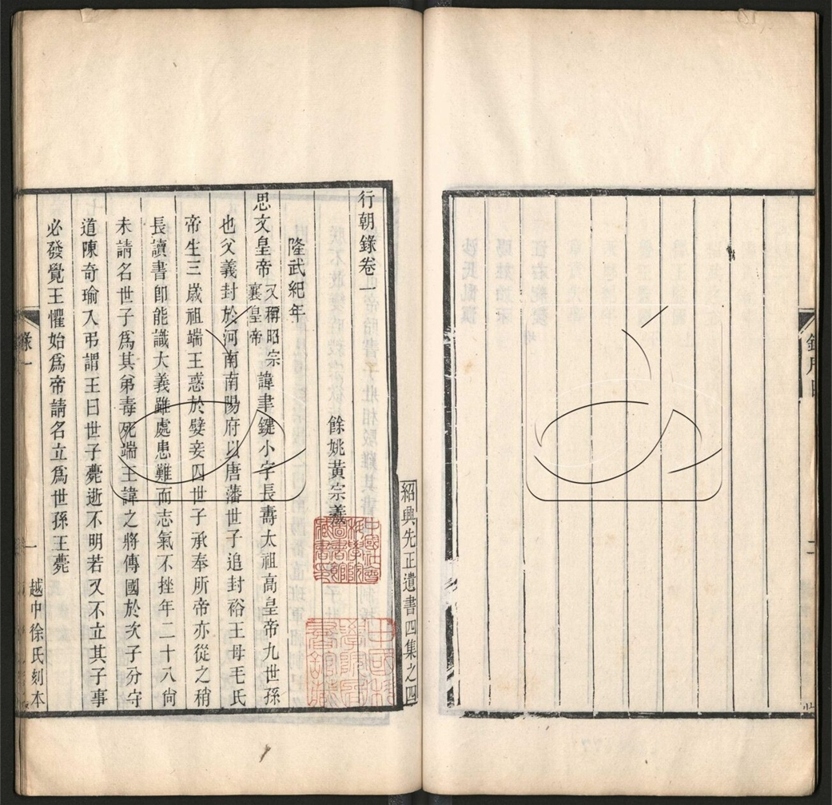 紹興先正遺書四集之四
行朝錄卷一
餘姚黃宗羲
隆武紀年
思文皇帝又稱昭宗襄皇帝諱聿鍵小字長壽太祖高皇帝九世孫
也父義封於河南南陽府以唐藩世子追封裕王母毛氏
帝生三歲祖端王惑於嬖妾囚世子承奉所帝亦從之稍
長讀書卽能識大義雖處患難而志氣不挫年二十八尙
未請名世子爲其弟毒死端王諱之將傳國於次子分守
道陳奇瑜入弔謂王曰世子薨逝不明若又不立其子事
必發覺王懼始爲帝請名立爲世孫王薨
錄一
一
越中徐氏刻本